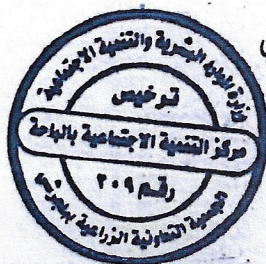 وزارة الموارد البشرية والتنمية الاجتماعية
ترخيص
مركز التنمية الاجتماعية بالباحة
رقم ٢٠٩
الجمعية التعاونية الزراعية